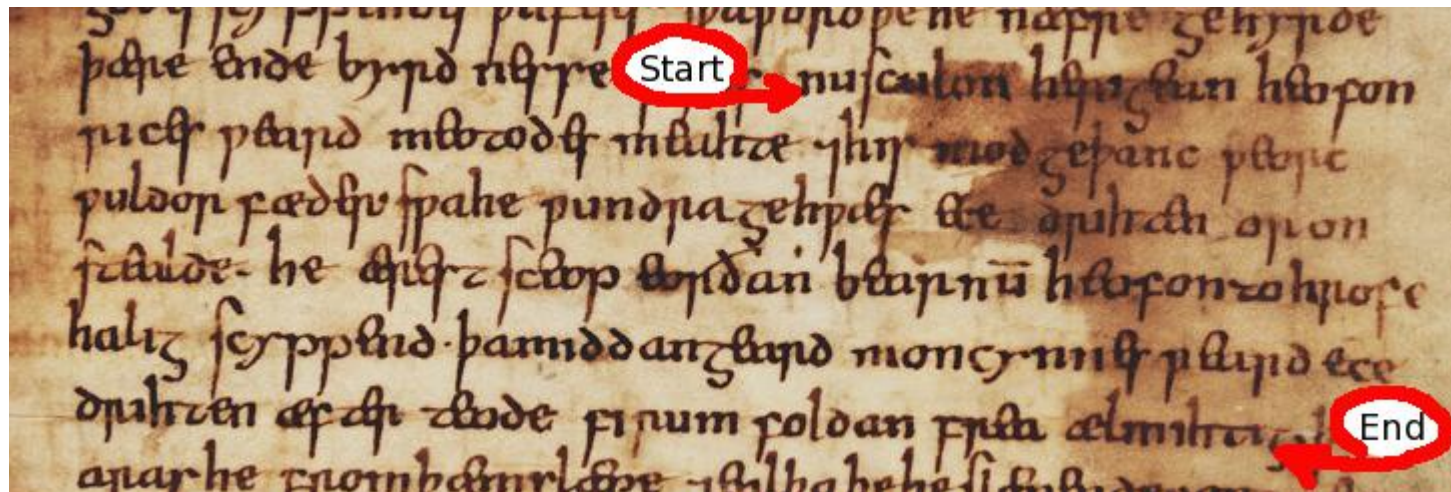 þa ƿord þe he næfre gehyrde
þære ende byrd nesse Start nu sculon herigean heofon
rices ƿeard meotodes meahte ⁊ his mod geþanc ƿeorc
ƿuldor fæder sƿa he ƿundra gehƿæs ece drihten or on
stealde. he ærest sceop eorðan bearnū heofon to hrofe
halig scyppend. þa middangeard moncynnes ƿeard ece
drihten æfter teode firum foldan frea ælmihtig End
aras he from þæm slæpe ⁊ eal þa þe he